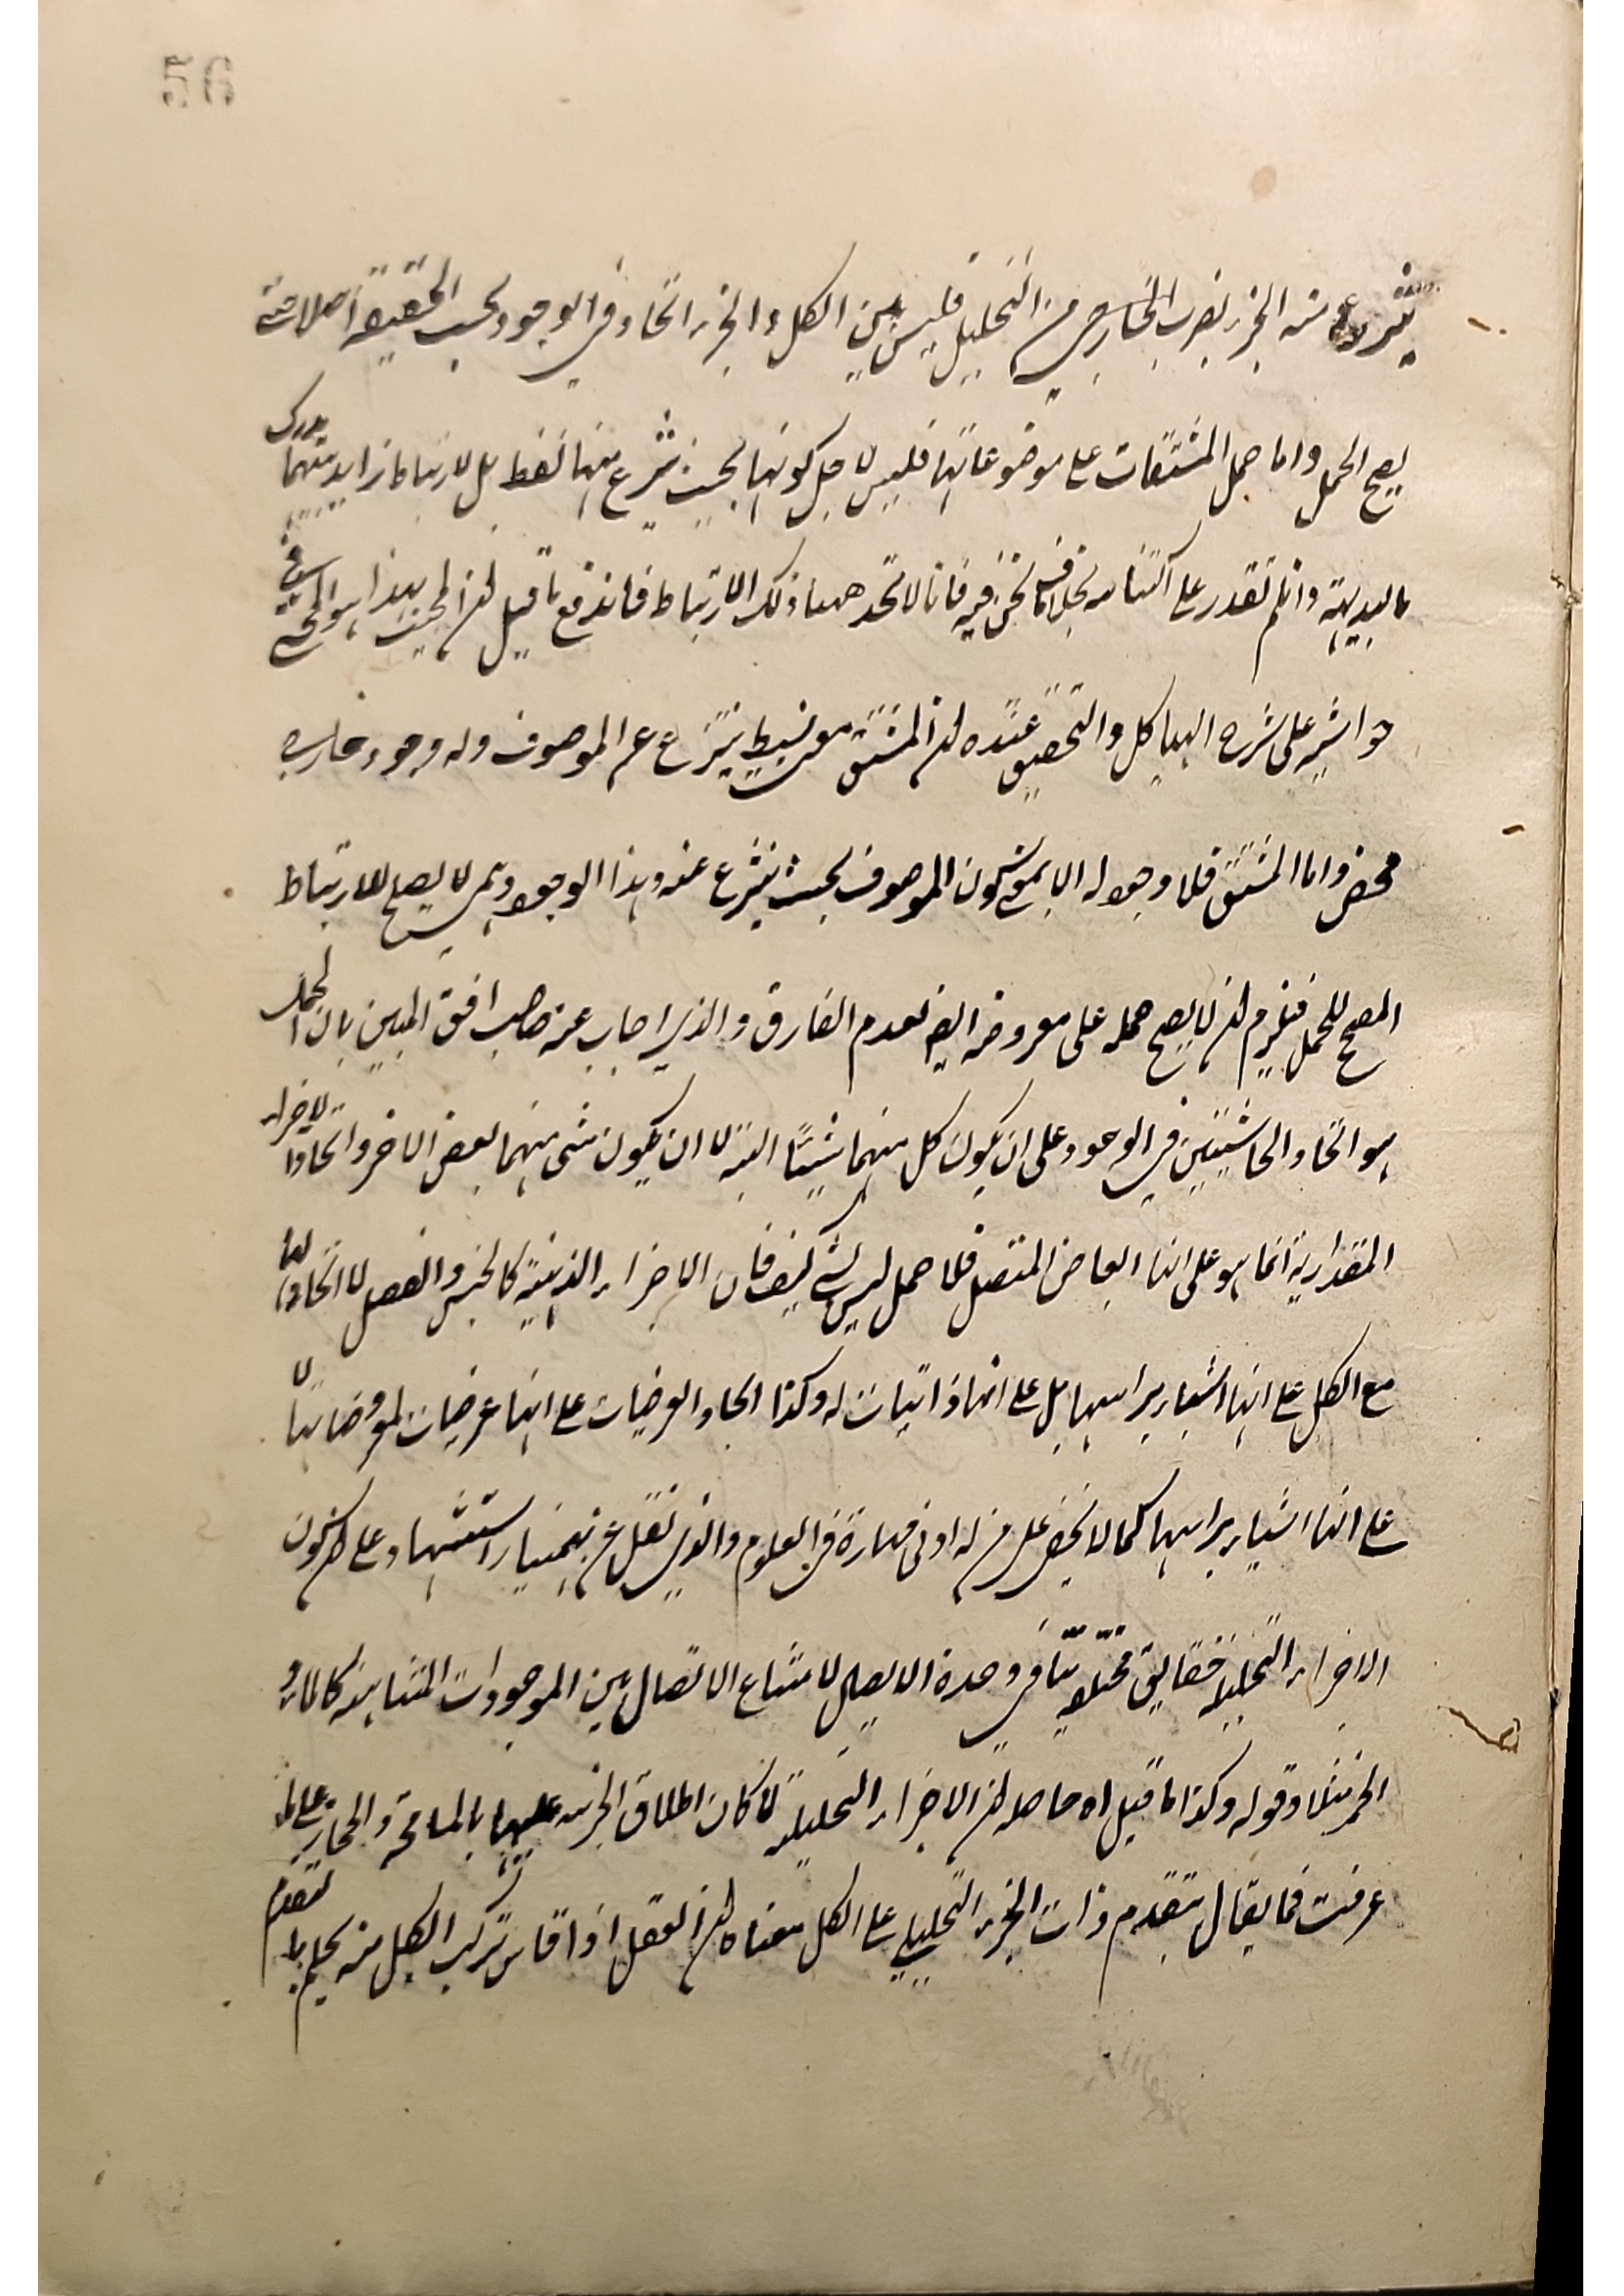 56
ينتزع منه الجزء بضرب الخارجي من التحليل فليس بين الكل والجزء اتحاد في الوجود بحسب الحقيقة اصلا حتى
يصح الحمل واما حمل المشتقات على موضوعاتها فليس لاجل كونها بحيث ينتزع منها فقط بل لارتباط زايد بينهما يدرك
بالبديهة وان لم نقدر على اكتناهه بخلاف ما نحن فيه فانا لا نجد ههنا ذلك الارتباط فاندفع ما قيل ان المجيب بهذا هو المحقق في
حواشيه على شرح الهياكل والتحقيق عنده ان المشتق معنى بسيط ينتزع عن الموصوف وله وجود خارجي
محض واما المشتق فلا وجود له الا بمعنى كون الموصوف بحيث ينتزع عنه وهذا الوجود لا يصح للارتباط
المصحح للحمل فيلزم ان لا يصح حمله على معروضه ايضا لعدم الفارق والذي اجاب عنه صاحب افق المبين بان الحمل
هو اتحاد الحاشيتين في الوجود على ان يكون كل منهما شيئا البتة لا ان يكون شئ منهما بعض الاخر واتحاد الاجزاء
المقدارية انما هو على انها ابعاض المتصل فلا حمل ليس بشئ كيف فان الاجزاء الذهنية كالجنس والفصل لا اتحاد لها
مع الكل على انها اشياء براسها بل على انها ذاتيات له وكذا اتحاد العرضيات على انها عرضيات لمعروضاتها لا
على انها اشياء براسها كما لا يخفى على من له ادنى مهارة في العلوم والذي نقل عن بهمنيار استشهاد على ان كون
الاجزاء التحليلية حقايق مختلفة ينافي وحدة الاتصال لامتناع الاتصال بين الموجودات المتباينة كالماء و
الخمر مثلا وقوله وكذا ما قيل اه حاصله ان الاجزاء التحليلية لما كان اطلاق الجزء عليها بالمسامحة والمجاز على ما
عرفت فما يقال بتقدم ذات الجزء التحليلي على الكل معناه ان العقل اذا قاس تركب الكل منه يحكم بتقدم